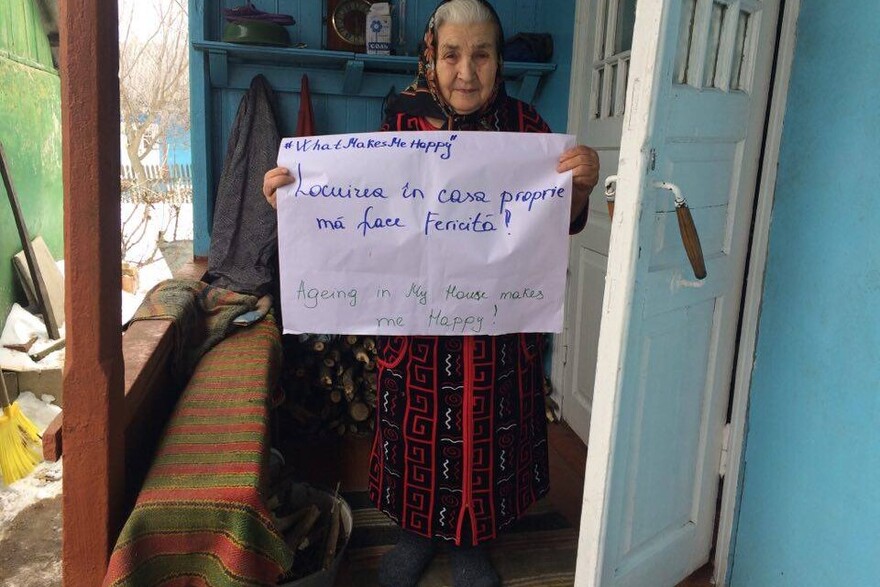 СОЛЬ
"#WhatMakesMeHappy"
Locuirea în casa proprie
mă face Fericită!
Ageing in My House makes
me Happy!